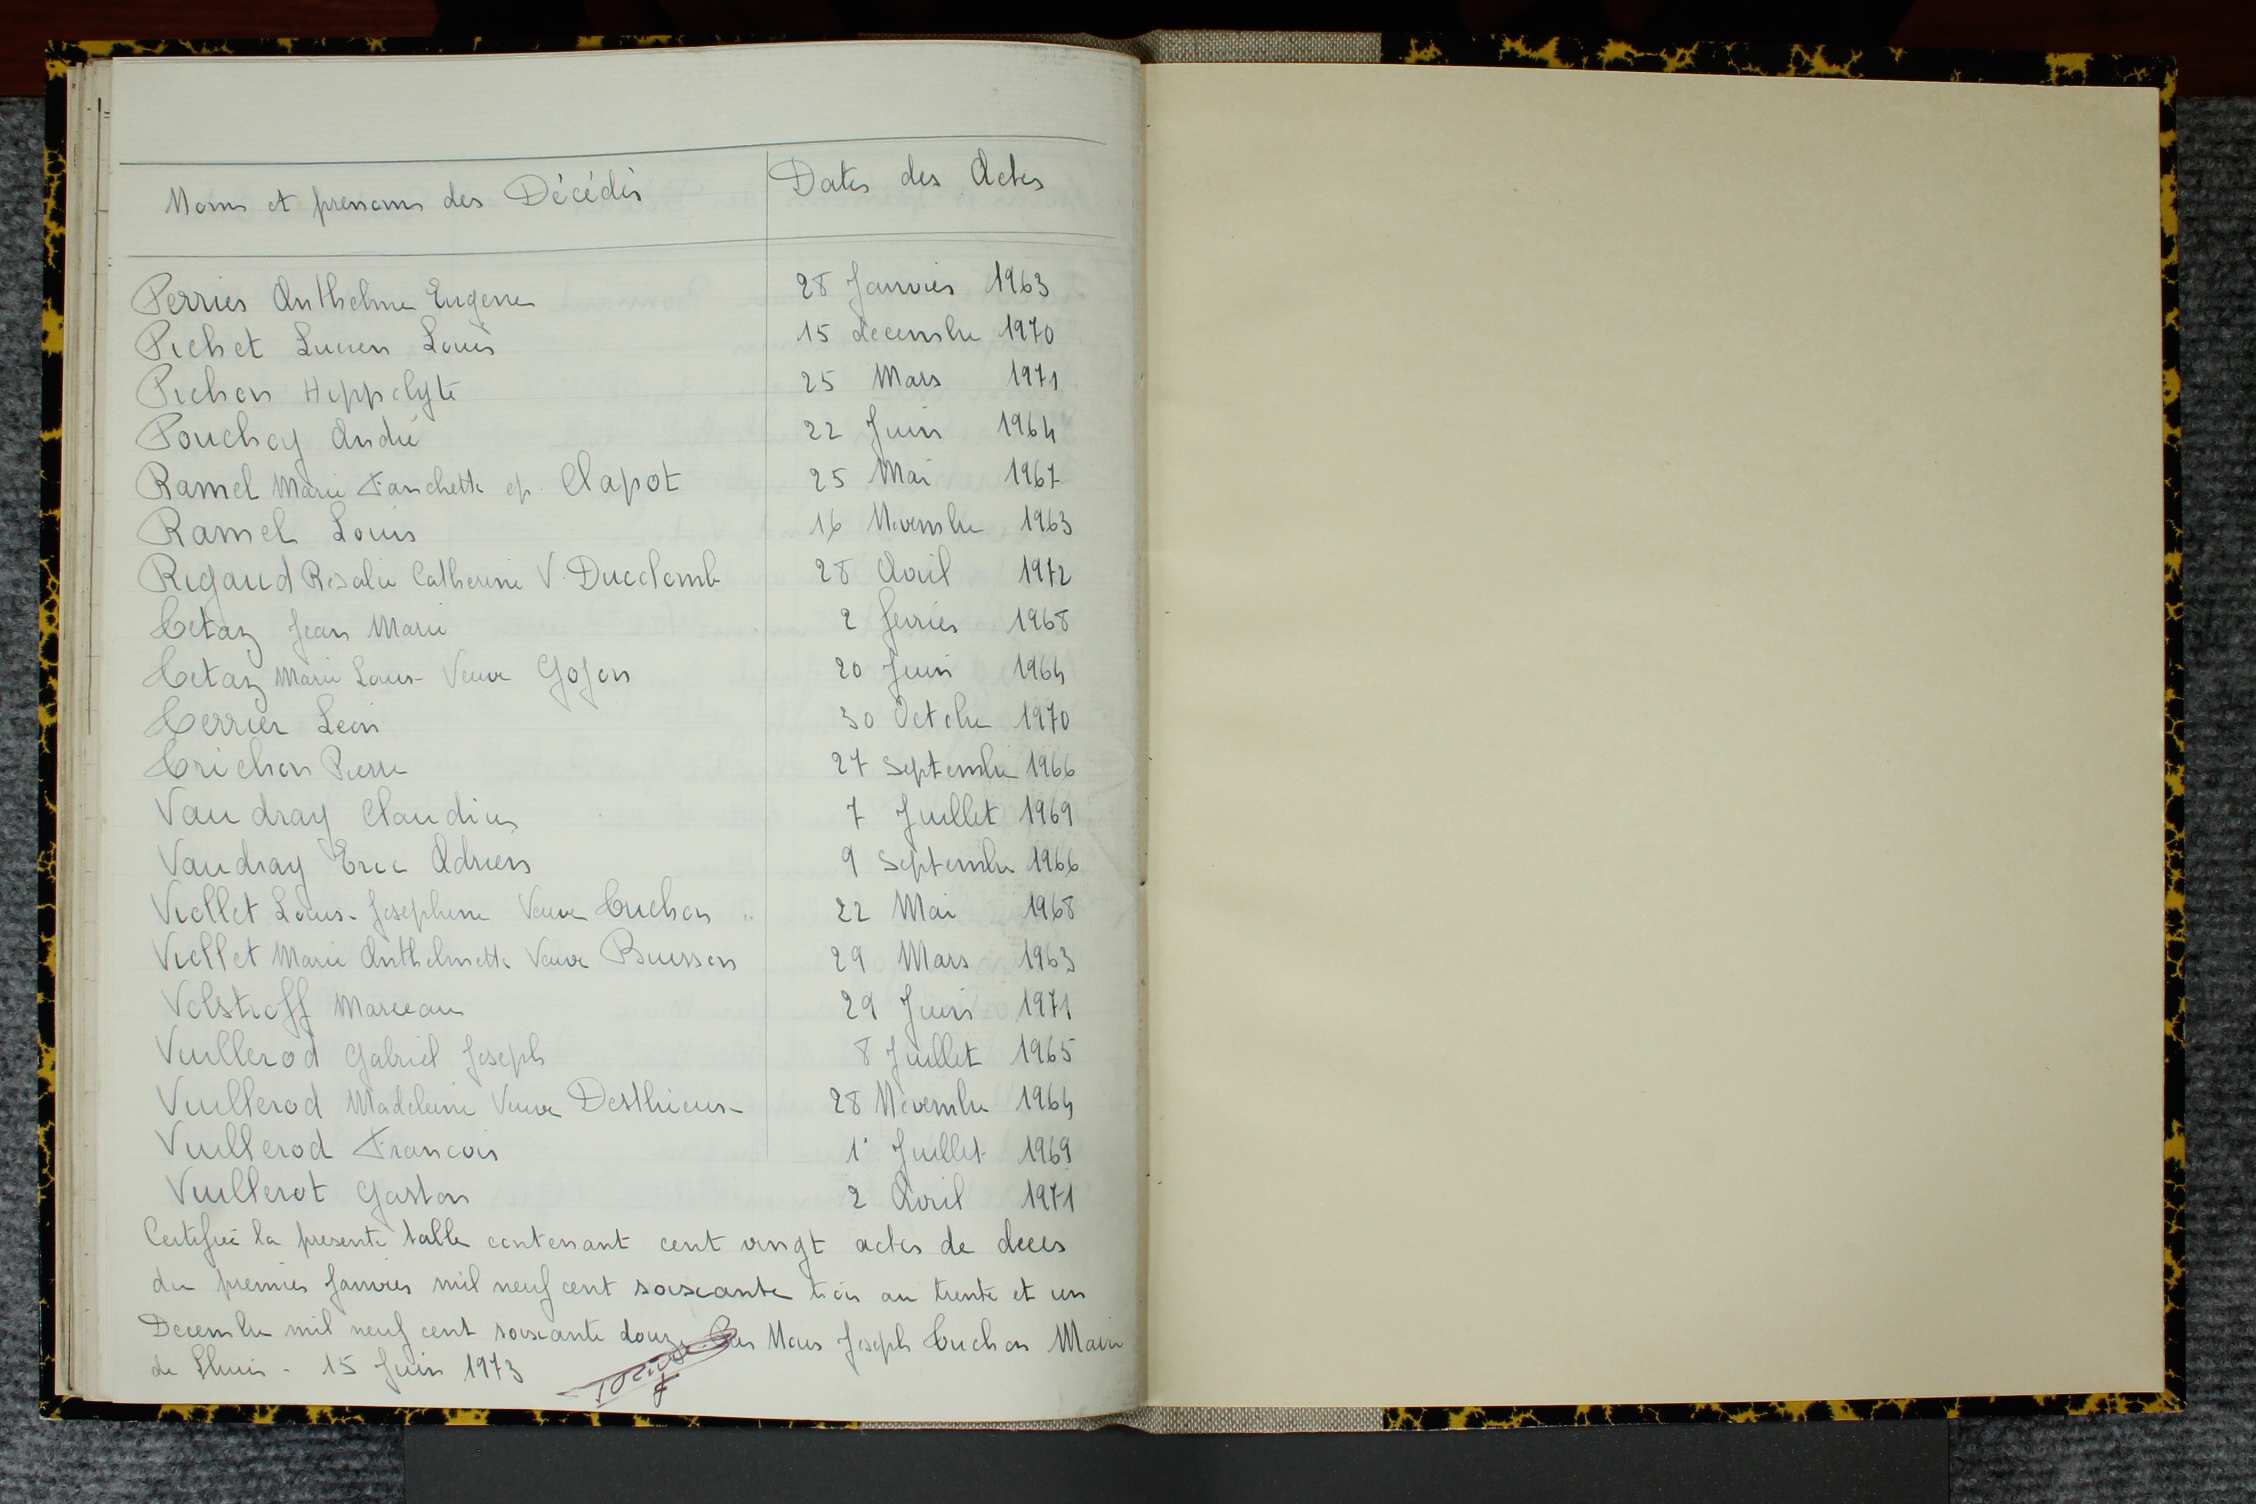 Noms et prenoms des Décédés Dates des Actes
Perrier Anthelme Eugene 28 Janvier 1963
Pichet Lucien Louis 15 decembre 1970
Pichon Hippolyte 25 Mars 1971
Pouchoy André 22 Juin 1964
Ramel Marie Fanchette ep. Clapot 25 Mai 1967
Ramel Louis 16 Novembre 1963
Rigaud Rosalie Catherine V. Ducolomb 28 Avril 1972
Tetaz Jean Marie 2 fevrier 1968
Tetaz Marie Louise Veuve Gojon 20 Juin 1964
Terrier Leon 30 Octobre 1970
Trichon Pierre 27 Septembre 1966
Vaudray Claudius 7 Juillet 1969
Vaudray Eric Adrien 9 Septembre 1966
Viollet Louise Josephine Veuve Trichon 22 Mai 1968
Viollet Marie Anthelmette Veuve Buisson 29 Mars 1963
Volstroff Marceau 29 Juin 1971
Vuillerod Gabriel Joseph 8 Juillet 1965
Vuillerod Madeleine Veuve Desthieux 28 Novembre 1964
Vuillerod Francois 1° Juillet 1969
Vuillerot Gaston 2 Avril 1971
Certifiée la presente table contenant cent vingt actes de deces
du premier Janvier mil neuf cent soixante trois au trente et un
Decembre mil neuf cent soixante douze. Par Nous Joseph Trichon Maire
de Lhuis - 15 Juin 1973